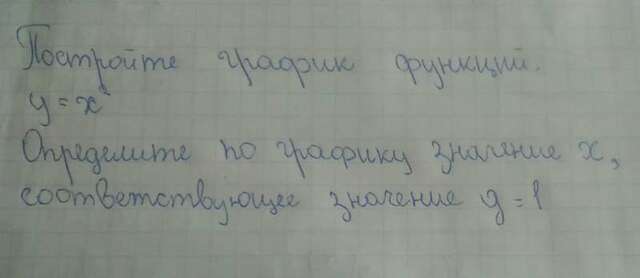 Постройте график функций.
y = x
Определите по графику значение x,
соответствующее значение y = 1